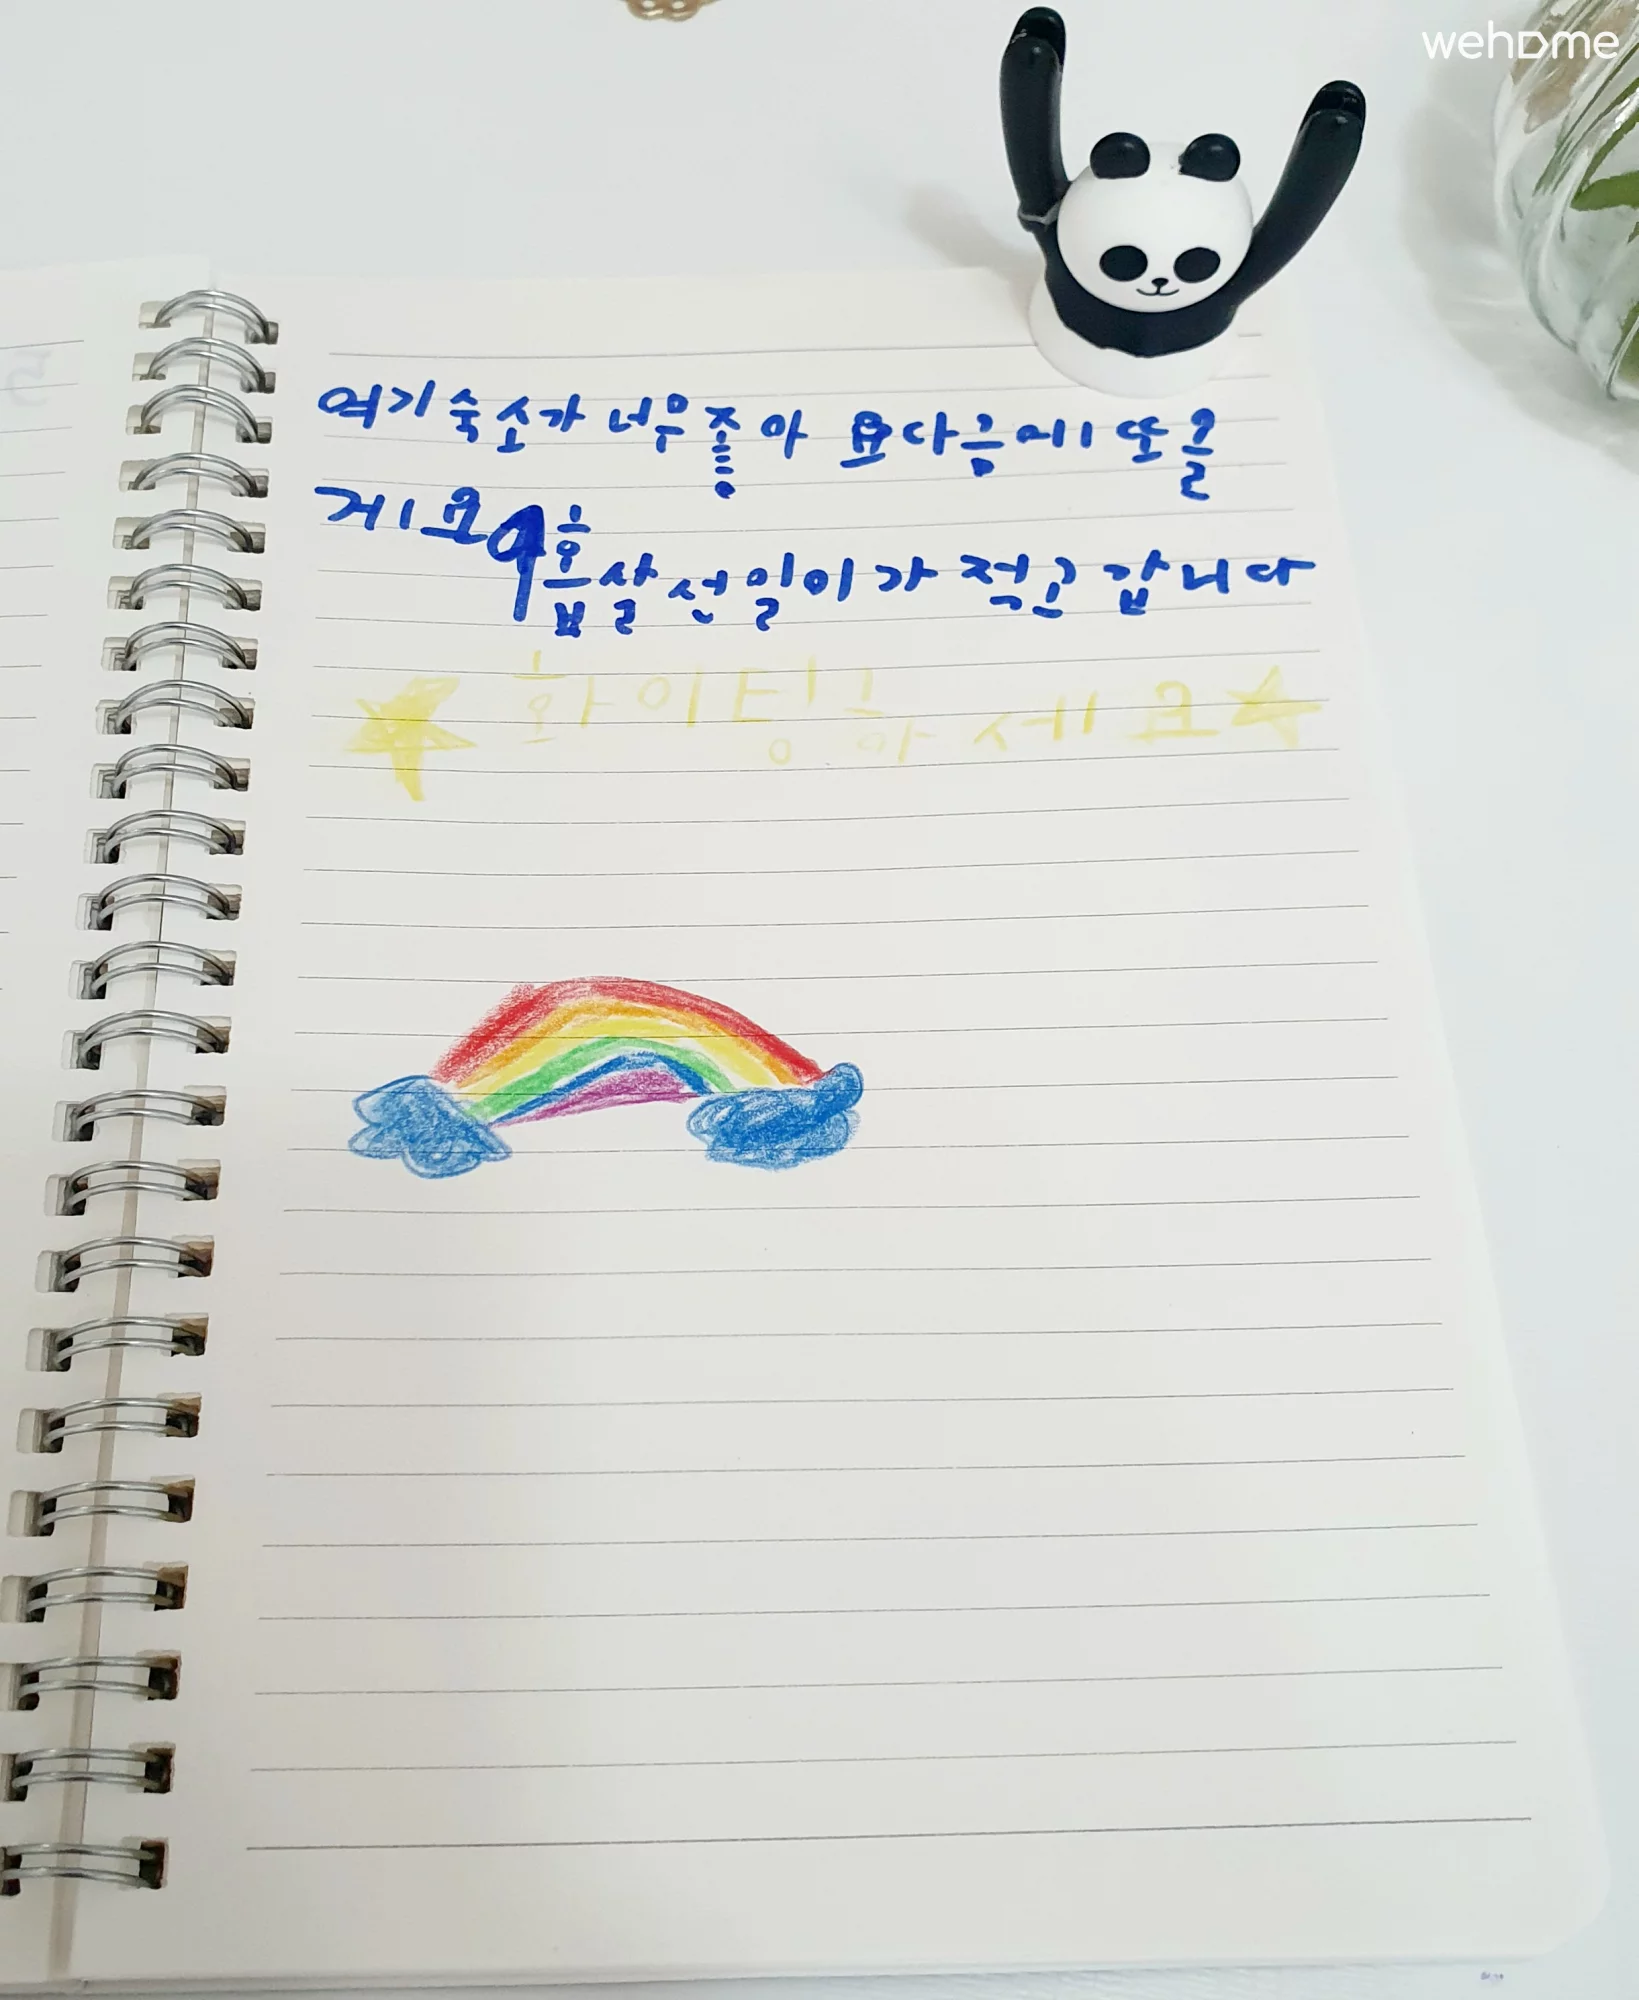 wehome
여기숙소가 너무 좋아요 다음에 또올
게요
9홉살 선일이가 적고 갑니다
화이팅하세요